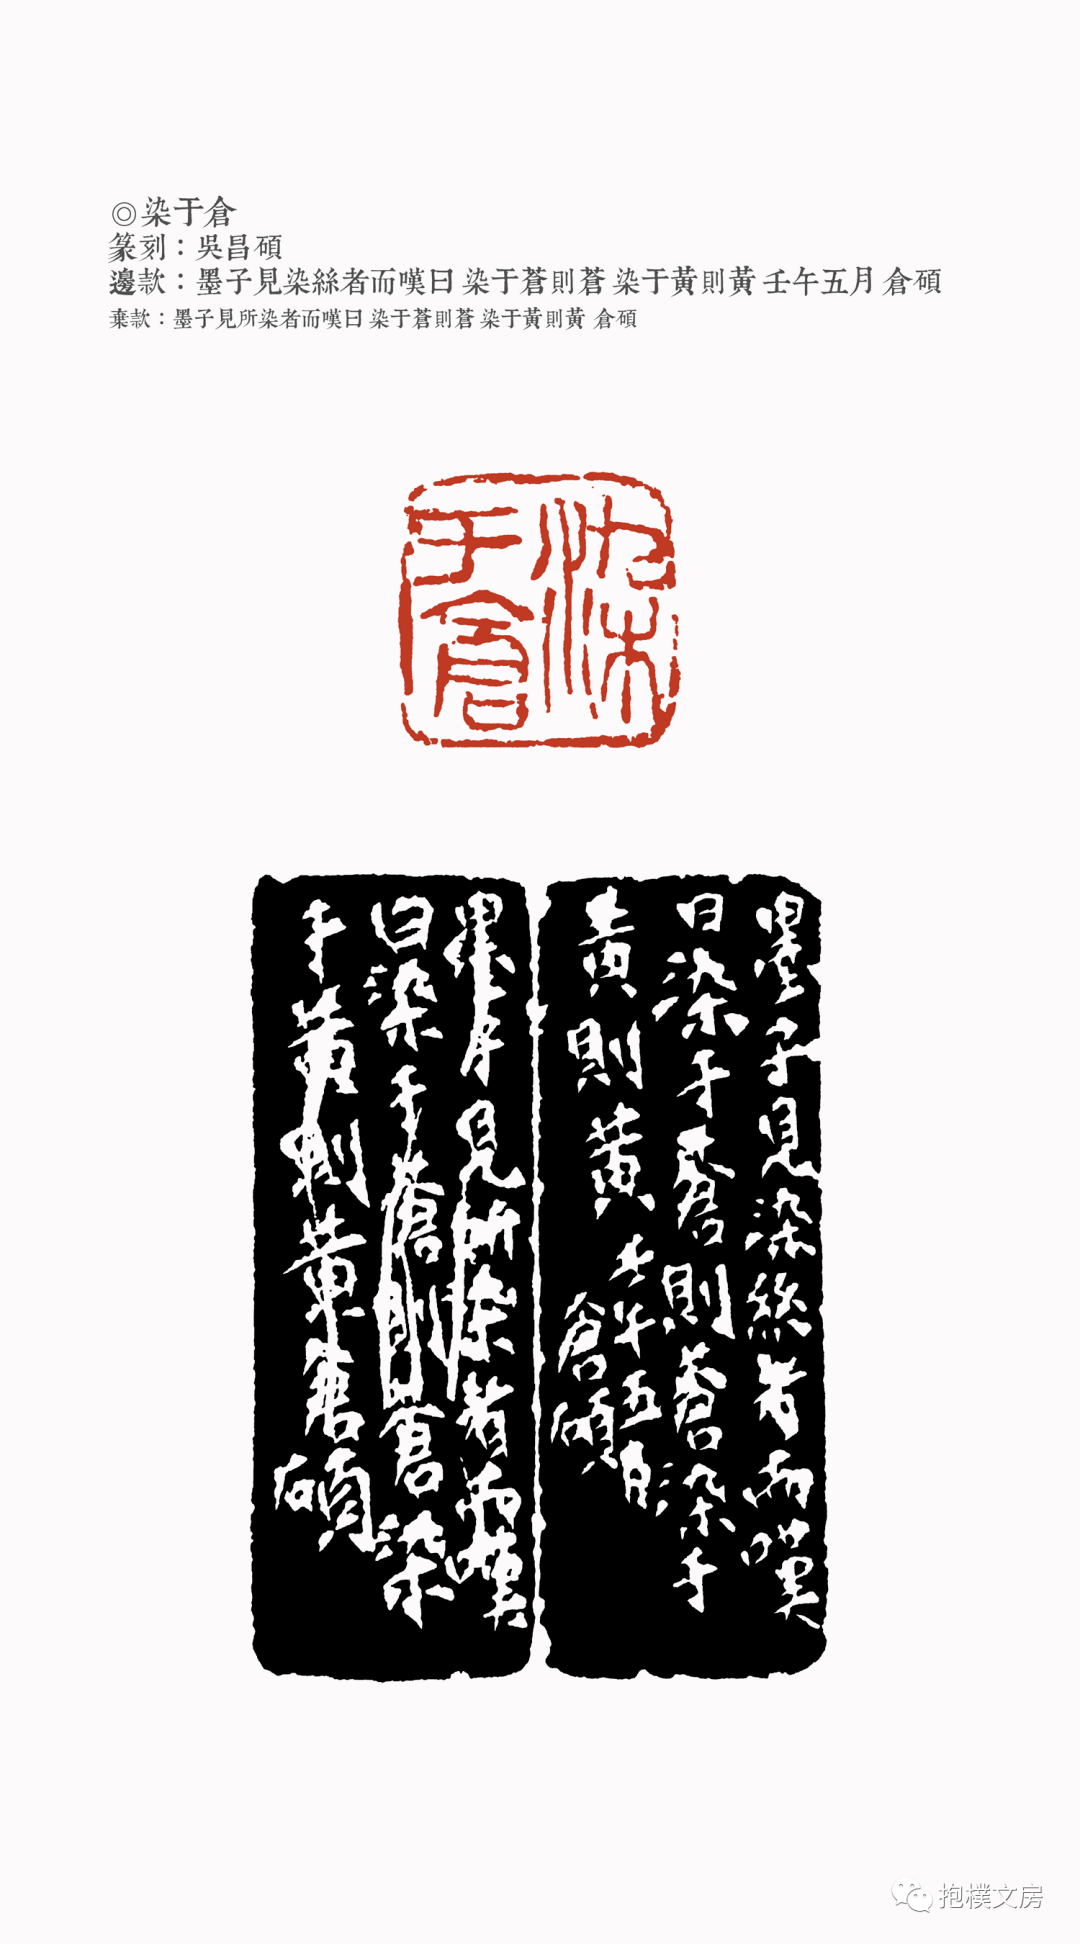 ◎染于倉
篆刻：吳昌碩
邊款：墨子見染絲者而嘆曰 染于蒼則蒼 染于黃則黃 壬午五月 倉碩
棄款：墨子見所染者而嘆曰 染于蒼則蒼 染于黃則黃 倉碩
染
于倉
墨子見染絲者而嘆
曰染于蒼則蒼染于
黃則黃壬午五月
倉碩
墨子見所染者而嘆
曰染于蒼則蒼染
于黃則黃倉碩
抱樸文房